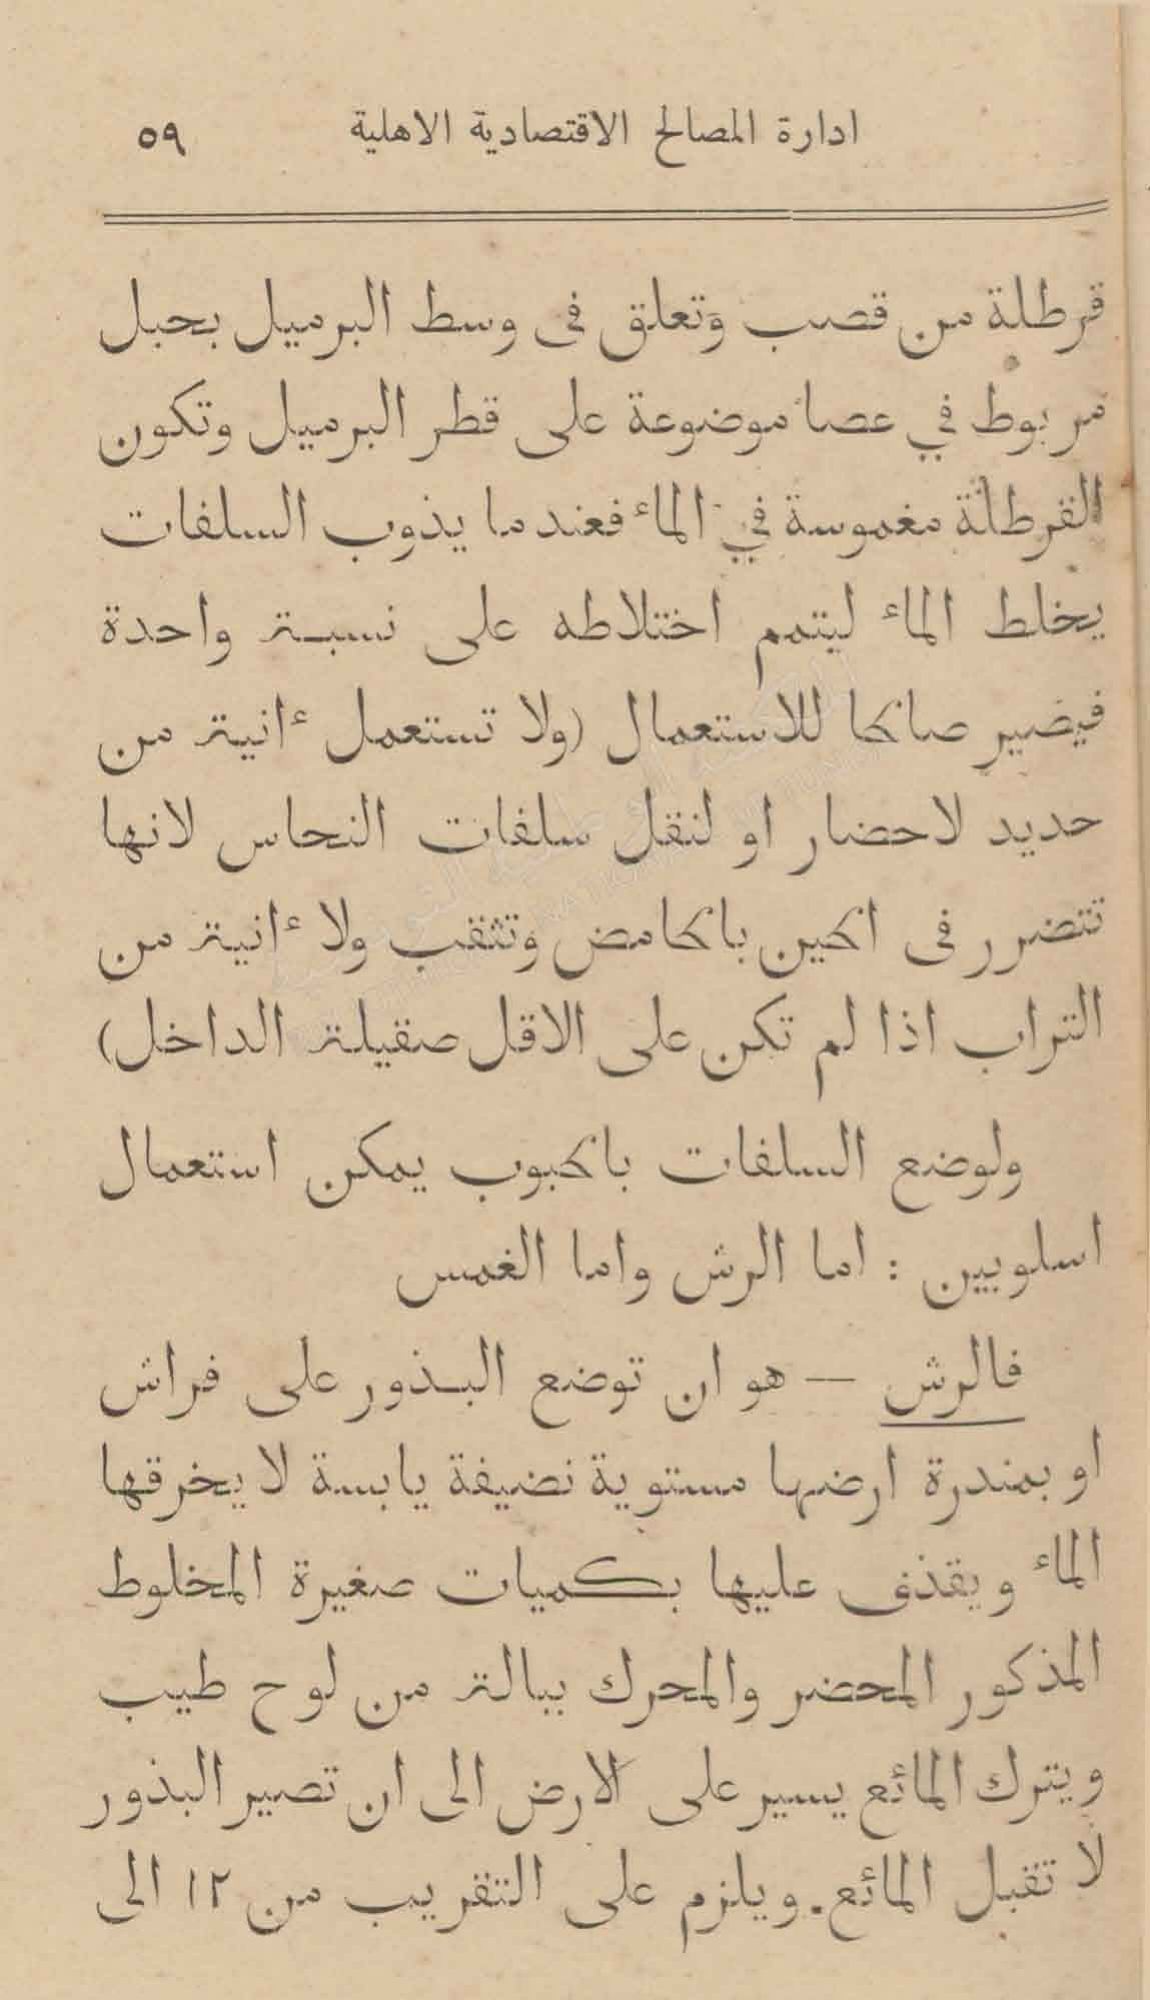 ادارة المصالح الاقتصادية الاهلية ٥٩
قرطلة من قصب وتعلق فى وسط البرميل بحبل
مربوط في عصا موضوعة على قطر البرميل وتكون
القرطلة مغموسة في الماء فعند ما يذوب السلفات
يخلط الماء ليتمم اختلاطه على نسبة واحدة
فيضير صالحا للاستعمال (ولا تستعمل ءانية من
حديد لاحضار او لنقل سلفات النحاس لانها
تتضرر فى الحين بالحامض وتثقب ولا ءانية من
التراب اذا لم تكن على الاقل صقيلة الداخل)
ولوضع السلفات بالحبوب يمكن استعمال
اسلوبين : اما الرش واما الغمس
فالرش — هو ان توضع البذور على فراش
او بمندرة ارضها مستوية نضيفة يابسة لا يخرقها
الماء ويقذف عليها بكميات صغيرة المخلوط
المذكور المحضر والمحرك ببالة من لوح طيب
ويترك المائع يسير على الارض الى ان تصير البذور
لا تقبل المائع. ويلزم على التقريب من ١٢ الى